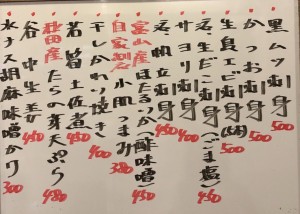 黒ムツ刺身 500
かつお刺身 500
生真エビ刺身 (5本) 500
生ヨリこ刺身 (ごま醤) 450
サヨリ刺身 450
活帆立刺身 400
富山産ほたるいか(酢味噌) 450
自家製〆小肌つまみ 380
干しかれい焼き 400
若筍土佐煮 450
秋田産たらの芽天ぷら 480
谷中生姜 450
水ナス胡麻味噌かけ 300